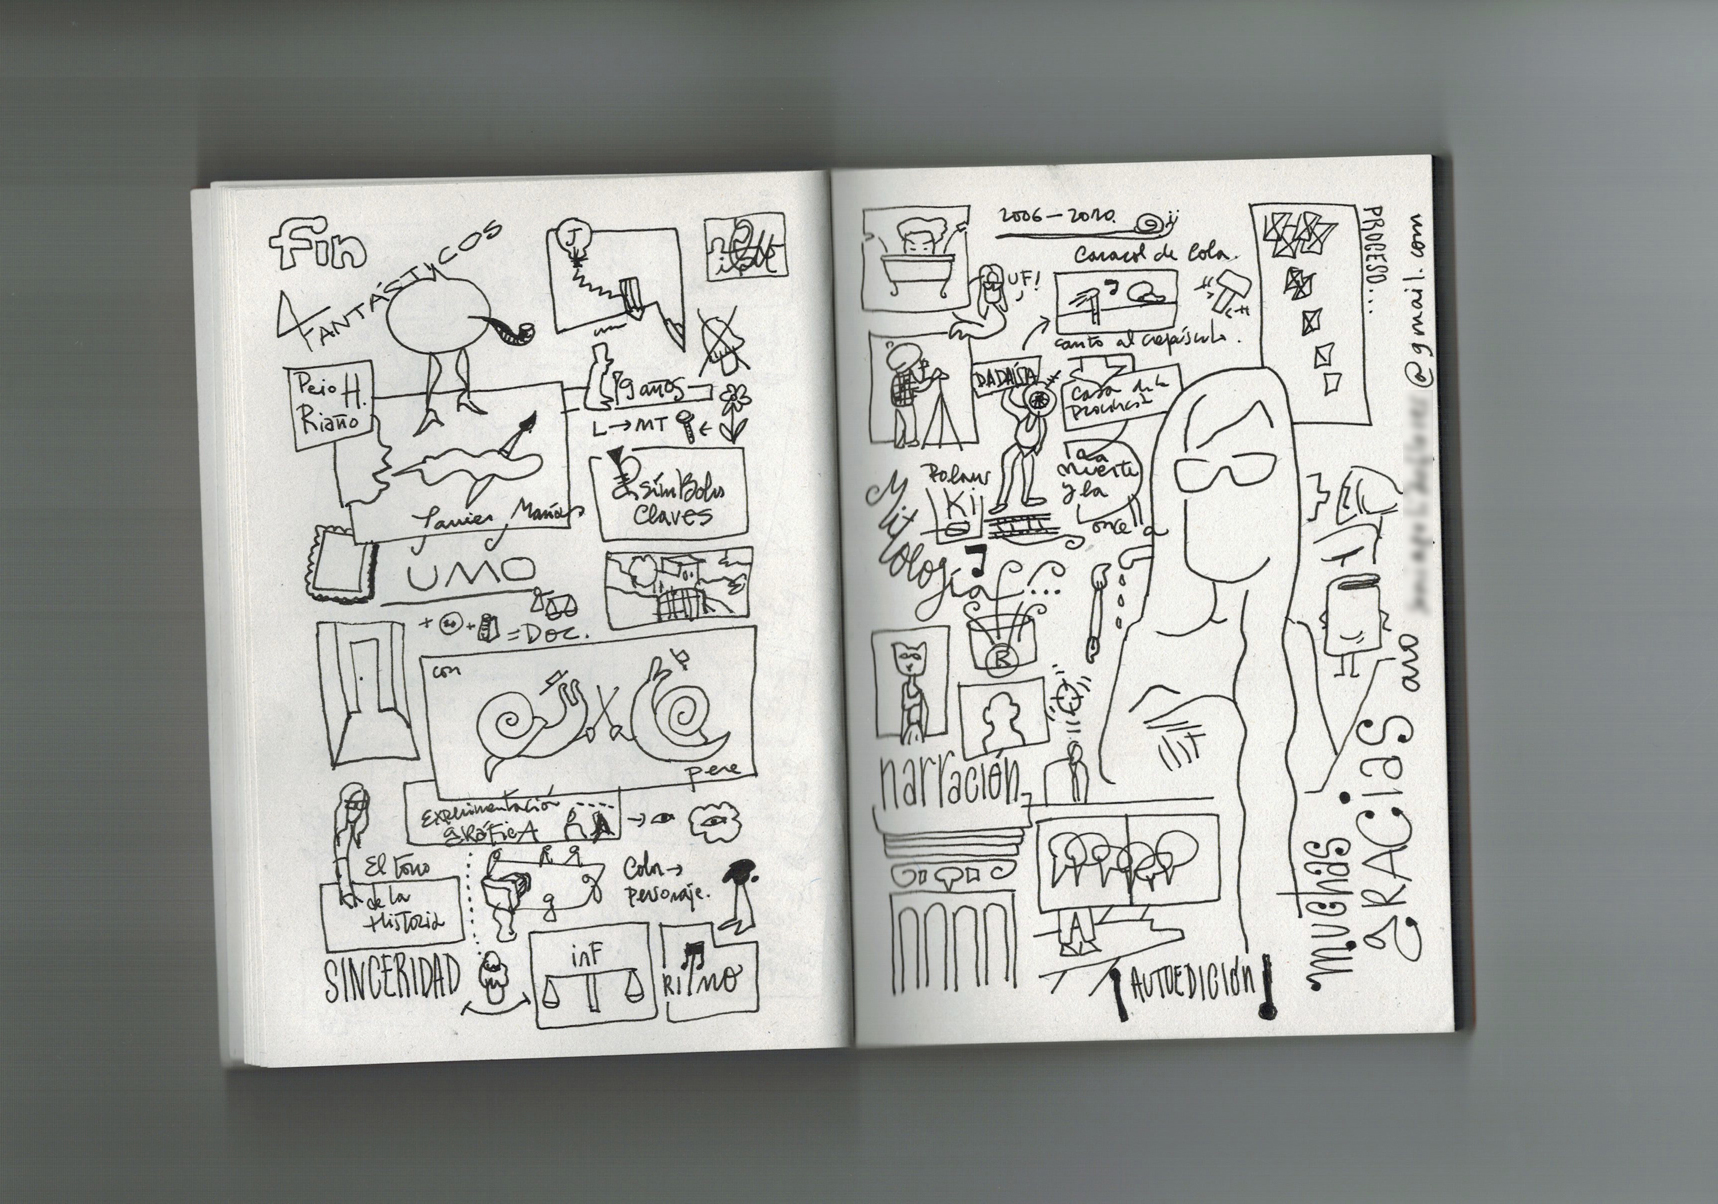 fin
4 FANTÁSTICOS
J
Peio H.
Riaño
9 años
L→MT
Símbolos
claves
Javier
UMO
= DOC.
con
pere
Experimentación
gráfica
El tono
de la
Historia
Color→
personaje.
SINCERIDAD
inf
RITMO
2006-2020
Caracol de Cola.
UF!
canto al crepúsculo.
PROCESO...
DADAÍSTA
muerte
y la
Ki
Mitología
R
narración
A
¡AUTOEDICIÓN!
@gmail.com
Muchas
GRACIAS